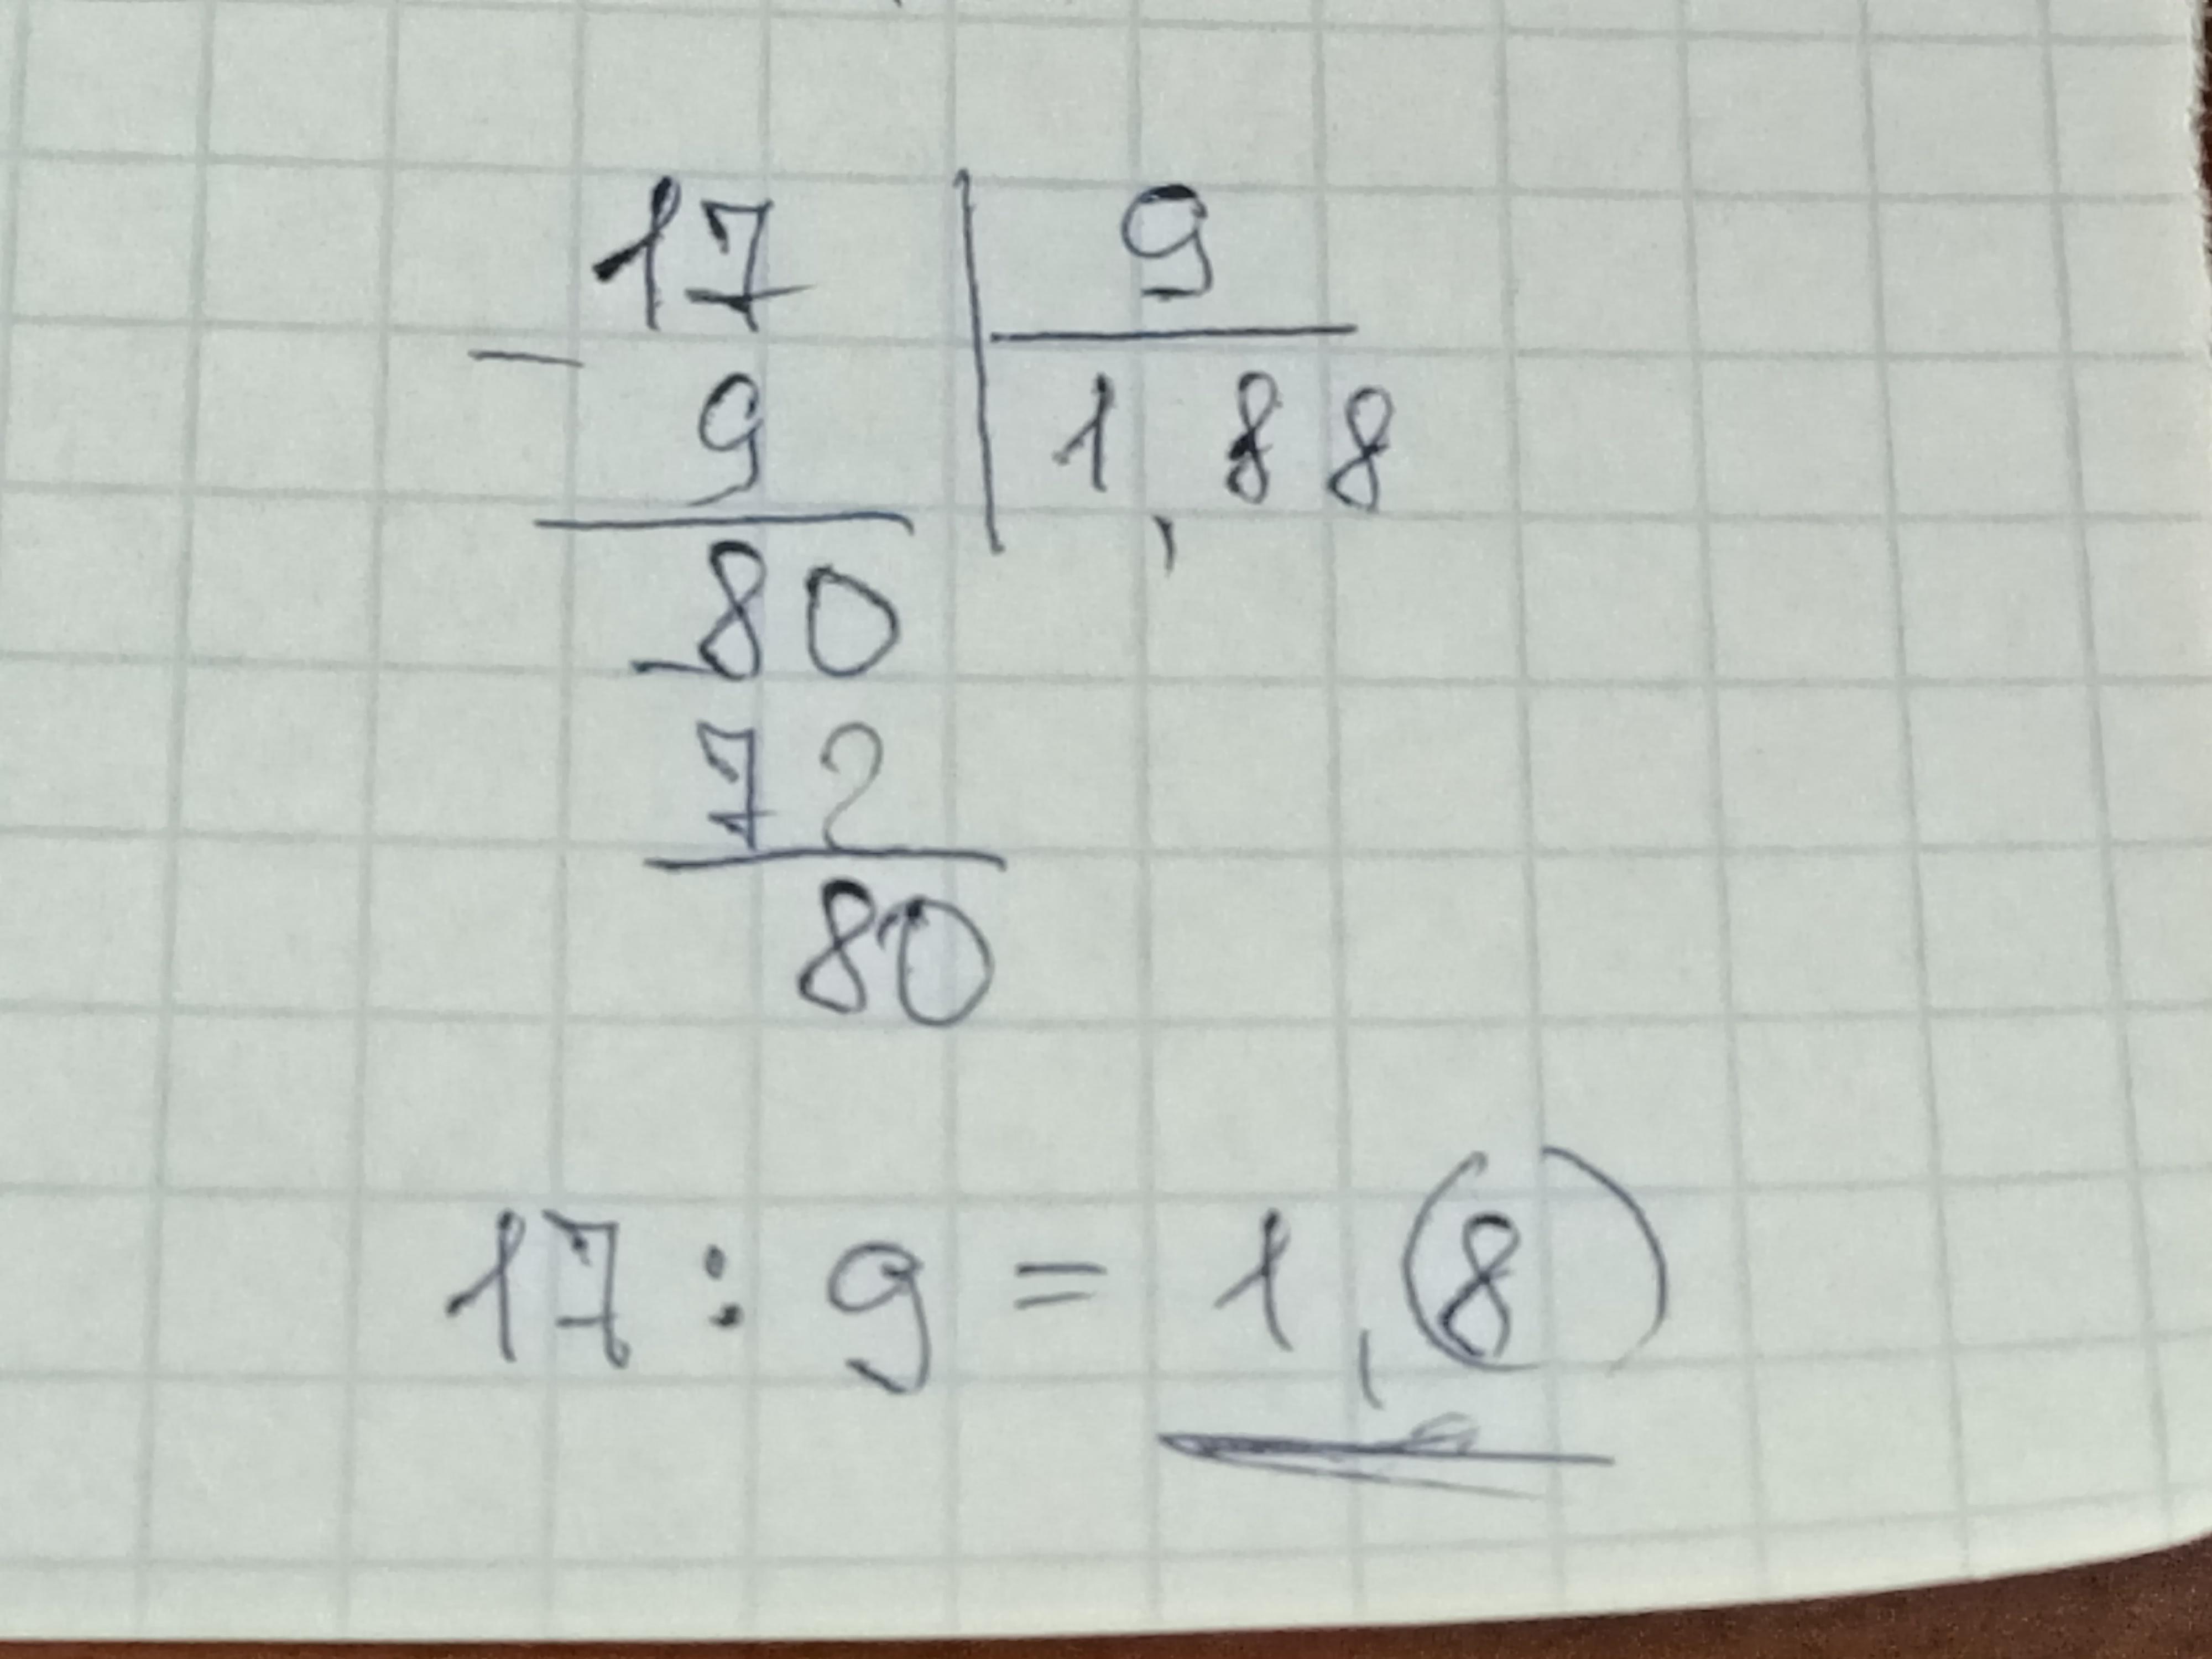 17 | 9
- 9 | 1,88
80
- 72
80
17 : 9 = 1,(8)